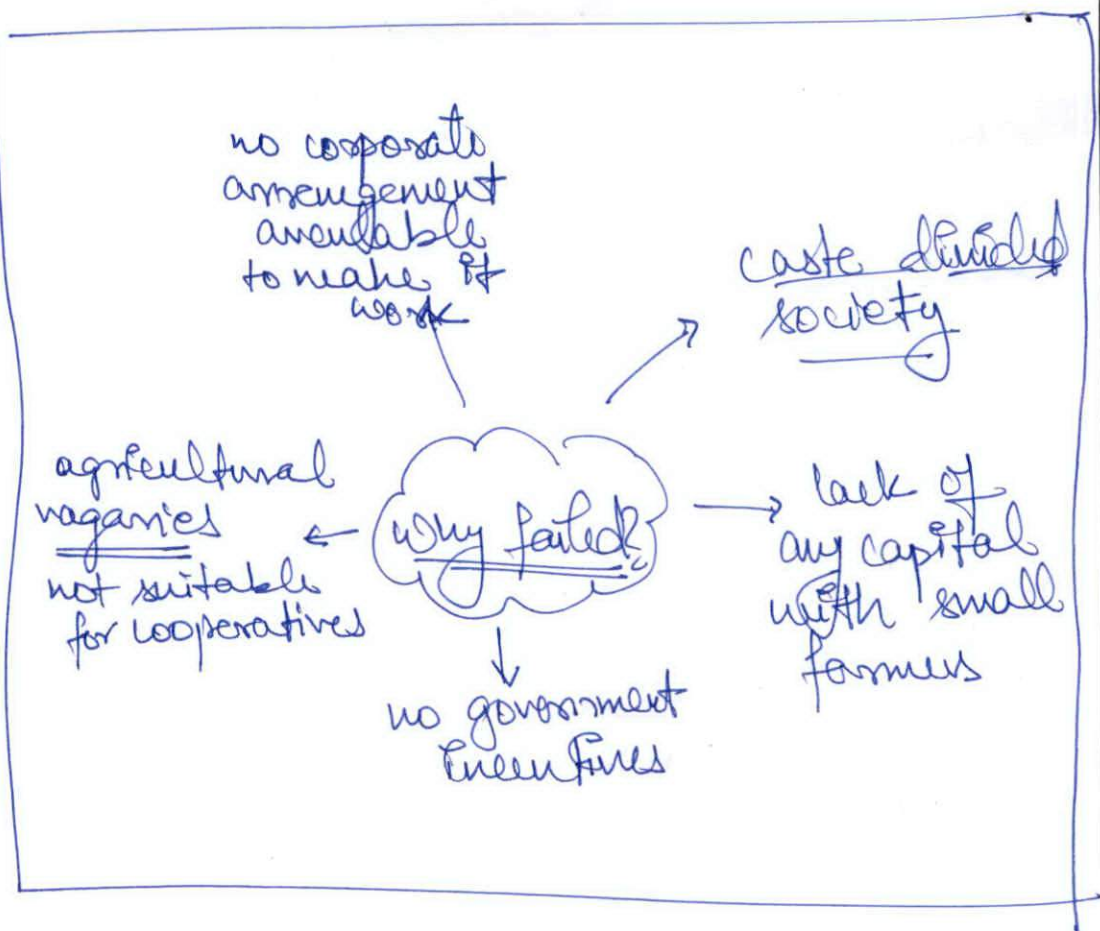 no corporate
arrangement
available
to make it
work
caste divided
society
agricultural
vagaries
not suitable
for cooperatives
why failed?
lack of
any capital
with small
farmers
no government
incentives